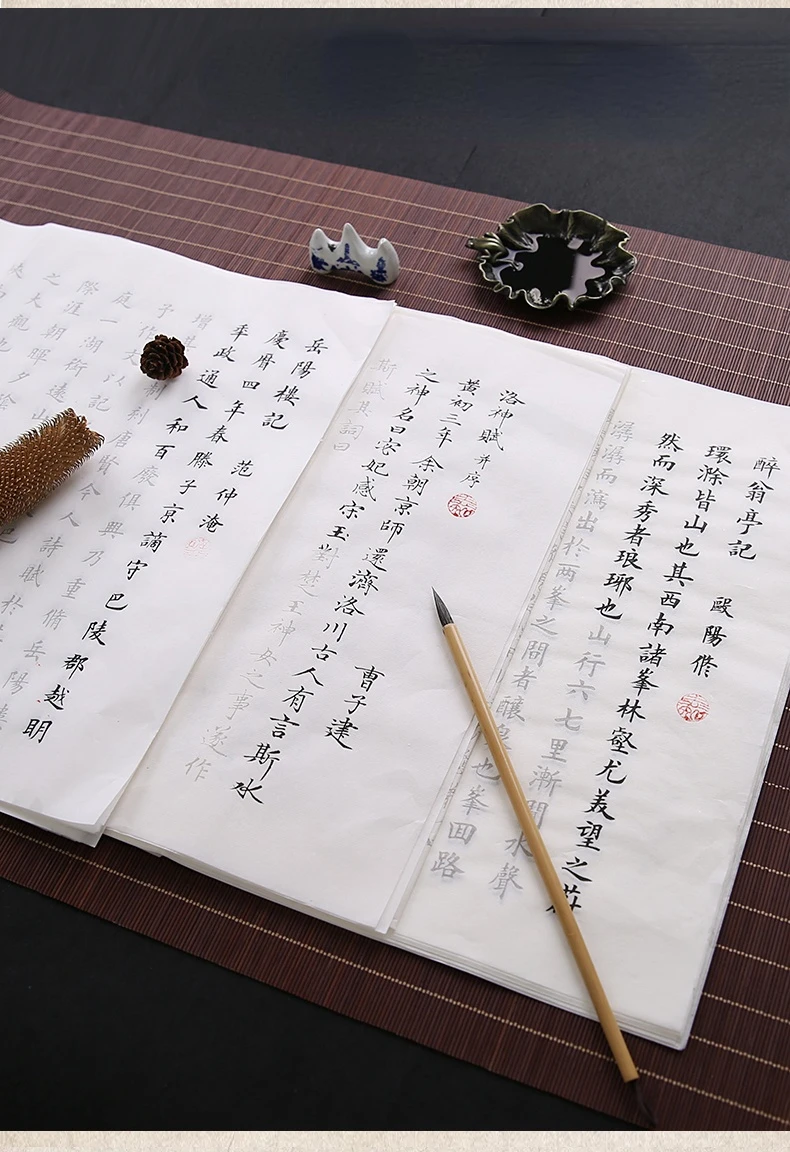 醉翁亭記 歐陽脩
環滁皆山也其西南諸峯林壑尤美望之蔚
然而深秀者琅琊也山行六七里漸聞水聲
潺潺而瀉出於两峯之間者釀泉也峯回路
洛神賦 并序 曹子建
黄初三年余朝京師還濟洛川古人有言斯水
之神名曰宓妃感宋玉對楚王神女之事遂作
斯賦其詞曰
岳陽樓記 范仲淹
慶曆四年春滕子京謫守巴陵郡越明
年政通人和百廢俱興乃重脩岳陽樓
增其制刻唐賢今人詩賦於
予作文以記
庭一湖銜遠山
際涯朝暉夕陰
之大觀也